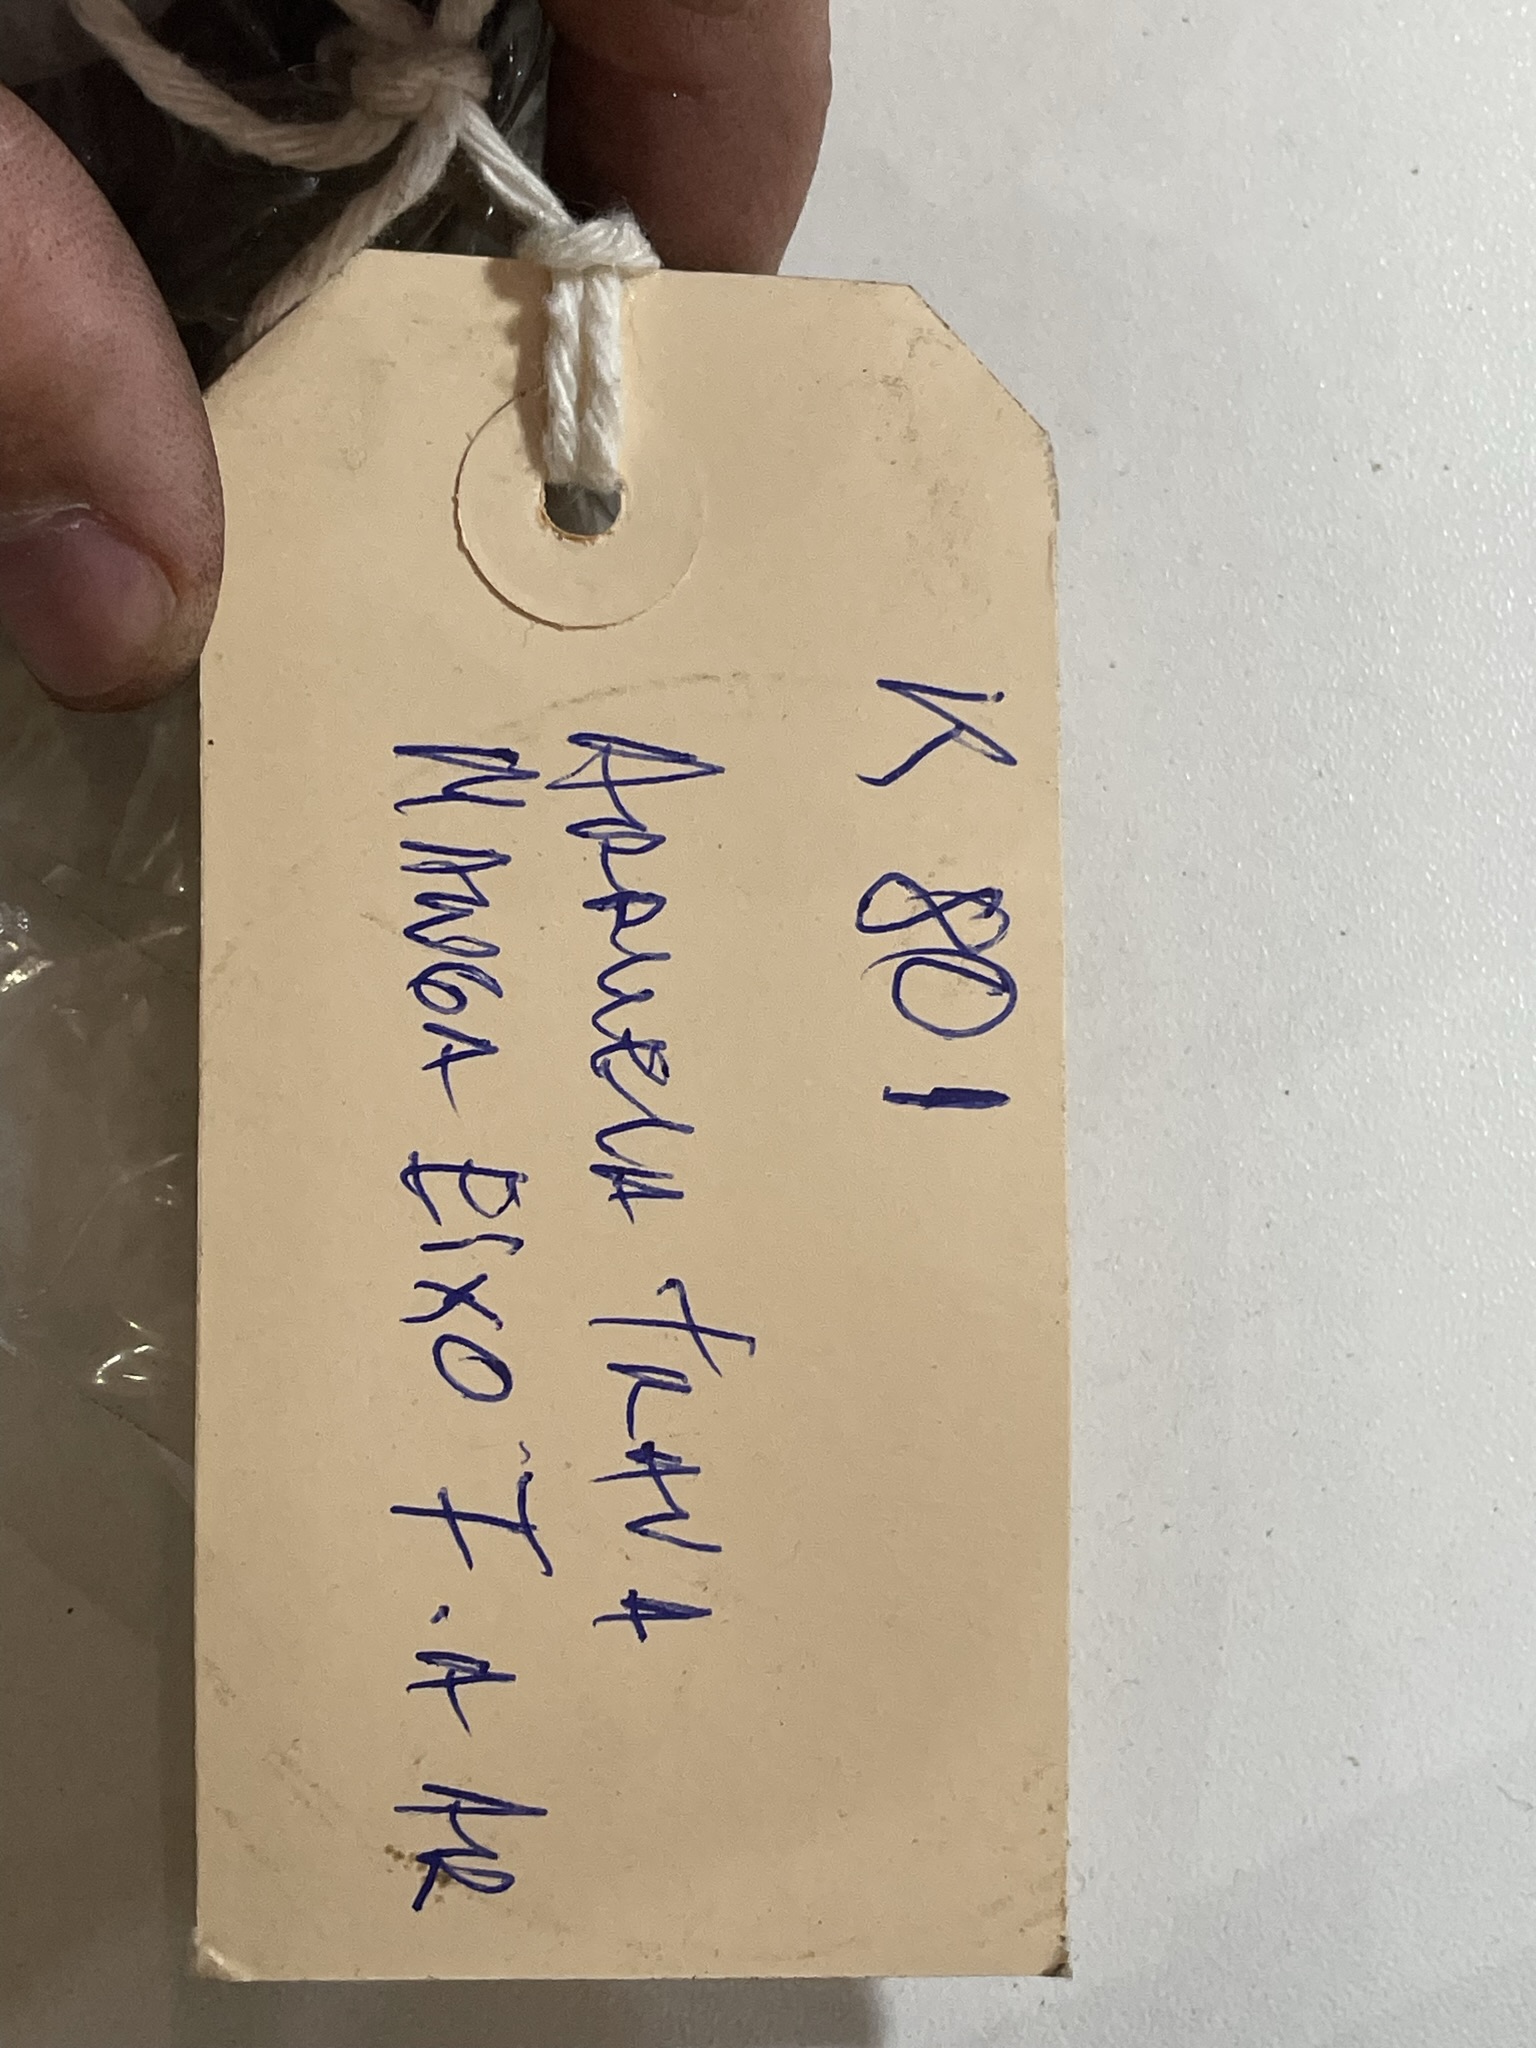 K 801
ARRUELA TRAVA
MANGA EIXO T.A AR